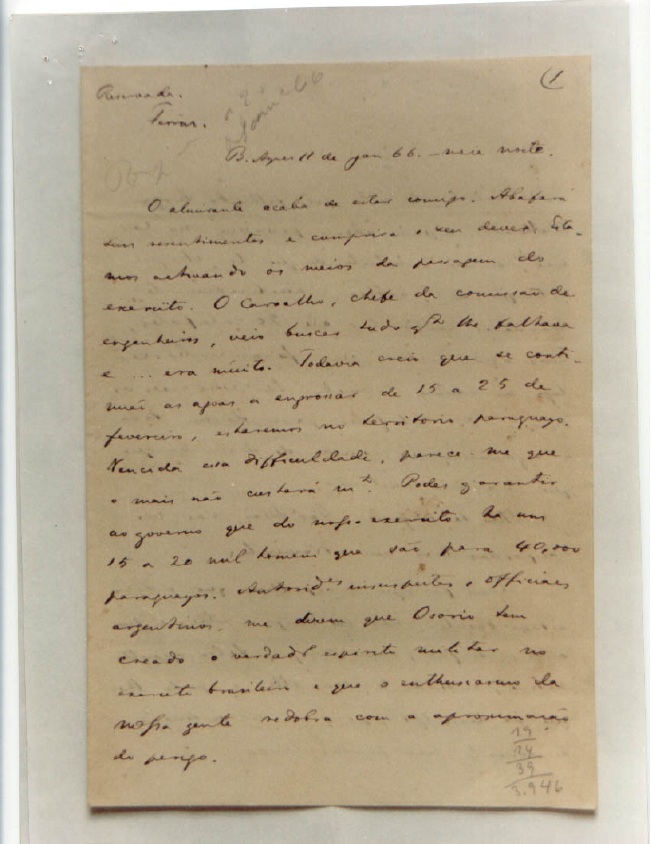 Reservada.
(1
B. Ayres 11 de jan 66. meia noite.
O almirante acaba de estar comigo. Abafará
seus resentimentos e comprirá o seu dever. Esta-
mos activando os meios da passagem do
exercito. O Carvalho, chefe da comissão de
engenheiros, veio buscar tudo q.to lhe faltava
e ... era muito. Todavia creio que se conti-
nuão as agoas a engrossar de 15 a 25 de
fevereiro, estaremos no territorio paraguayo.
Vencida essa difficuldade, parece-me que
o mais não custará m.to. Podes garantir
ao governo que do nosso exercito ha uns
15 a 20 mil homens que são para 40,000
paraguayos. Autorid.es insuspeitas e officiaes
argentinos me dizem que Osorio tem
creado o verdad.o espirito militar no
exercito brasileiro e que o enthusiasmo da
nossa gente redobra com a aproximação
do perigo.
19
14
39
3.946